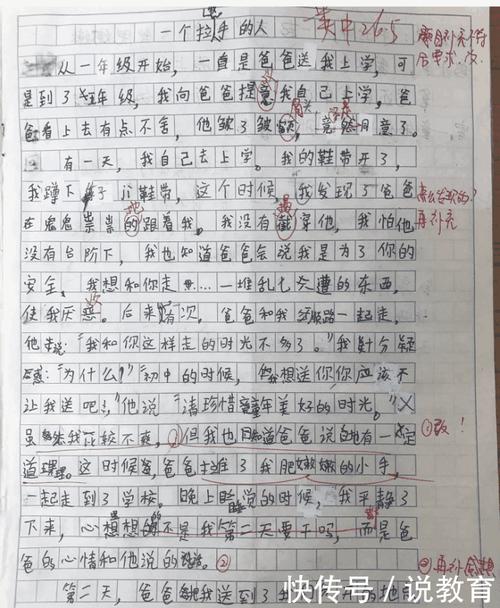 一个拉手的人
从一年级开始，一直是爸爸送我上学，可
是到了五年级，我向爸爸提意我自己上学，爸
爸看上去有点不舍，他皱了皱眉头，竟然同意了。
有一天，我自己去上学。我的鞋带开了，
我蹲下系鞋带，这个时候，我发现了爸爸
在鬼鬼祟祟的跟着我。我没有截穿他，我怕他
没有台阶下，我也知道爸爸会说我是为了你的
安全，我想和你走……一堆乱七八遭的东西，
使我厌恶。后来有次，爸爸和我顺路一起走，
他说："我和你这样走的时光不多了。"我十分疑
惑："为什么""初中的时候，我想送你你应该不
让我送吧！"他说"请珍惜童年美好的时光。"
虽然我比较不爽，但我也知道爸爸说的有一定
道理。这时候，爸爸拉住了我肥嫩嫩的小手，
一起走到了学校。晚上睡觉的时候，我平静了
下来，心想想的不是我第二天要干吗，而是爸
爸的心情和他说的话。②
第二天，爸爸把我送到了
再补充
①改！
快传号／说教育